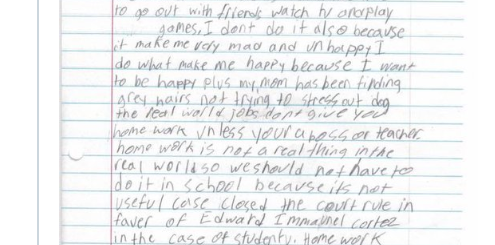 to go out with friends watch tv and play
games, I dont do it also because
it make me very mad and unhappy I
do what make me happy because I want
to be happy plus my mom has been finding
grey hairs not trying to stress out dog
the real world jobs dont give you
home work unless your a boss or teacher
home work is not a real thing in the
real world so we should not have to
do it in school because its not
useful case closed the court rule in
faver of Edward Immanuel cortez
in the case of student v. Home work